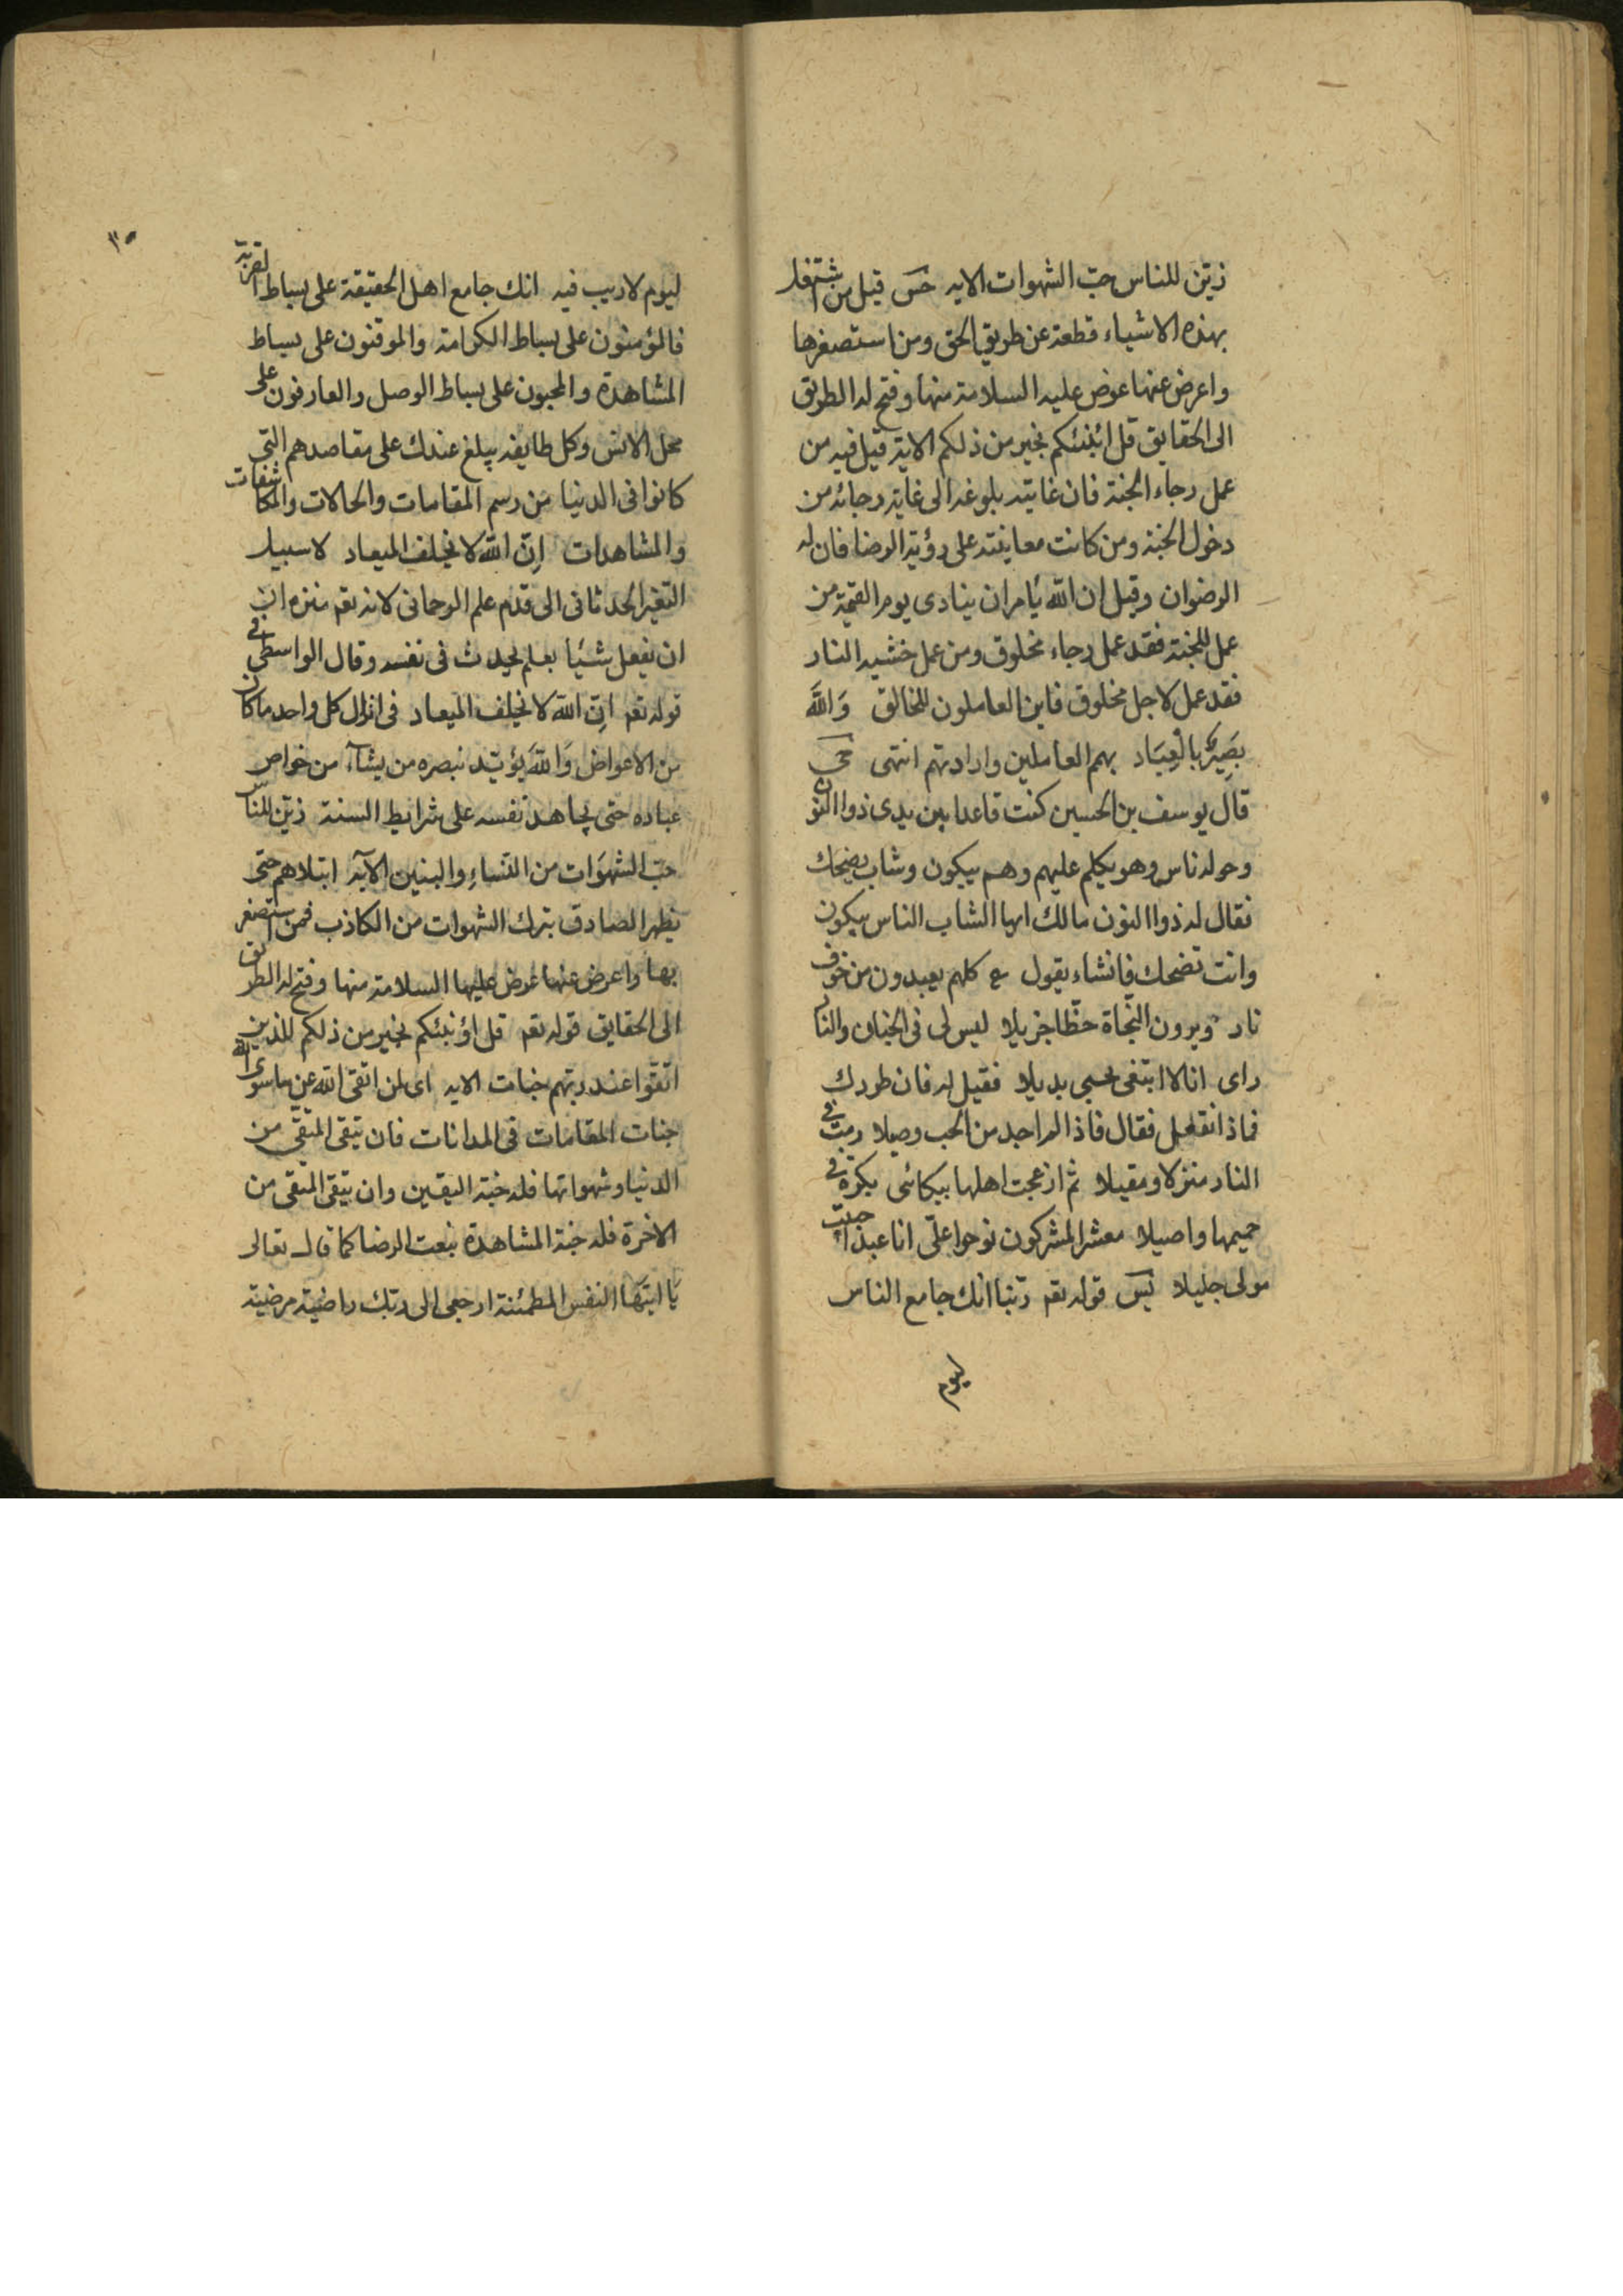 زين للناس حب الشهوات الايه خس قيل من اشتغل
بهذه الاشياء قطعته عن طريق الحق ومن استصغرها
واعرض عنها عوض عليه السلامة منها وفتح له الطريق
الى الحقايق قل ائنبئكم بخير من ذلكم الاية قيل فيه من
عمل رجاء الجنة فان غايته بلوغه الى غاية رجائه من
دخول الجنة ومن كانت معاينته على رؤية الرضا فان له
الرضوان وقيل ان الله يامران ينادى يوم القيمة من
عمل للجنة فقد عمل رجاء مخلوق ومن عمل خشيه النار
فقد عمل لاجل مخلوق فاين العاملون للخالق وَاللهَ
بصِيرٌ بالْعِبَاد بهم العاملين وارادتهم انتهى
قال يوسف بن الحسين كنت قاعدا بين يدى ذوا النون
وحوله ناس وهو يكلم عليهم وهم يبكون وشاب يضحك
فقال له ذوا النون مالك ايها الشاب الناس يبكون
وانت تضحك فانشاء يقول ع كلهم يعبدون من خوف
نار ويرون النجاة حظّا جزيلا ليس لى فى الجنان والنار
راى انا لا ابتغى بحبى بديلا فقيل له فان طردك
فماذا تفعل فقال فاذا لم اجد من الحب وصلا رمت في
النار منزلا ومقيلا ثم ازعجت اهلها ببكائى بكرة في
حميمها واصيلا معشر المشركون نوحوا علىّ انا عبد احببت
مولى جليلا قوله تعم ربنا انك جامع الناس
ليوم
٣٥
ليوم لا ريب فيه انك جامع اهل الحقيقة على بساط القربة
فالمؤمنون على بساط الكرامة والموقنون على بساط
المشاهدة والمحبون على بساط الوصل والعارفون على
محل الانس وكل طايفه يبلغ عندك على مقاصدهم التى
كانوا فى الدنيا من رسم المقامات والحالات والمكاشفات
والمشاهدات اِنّ الله لا يخلف الميعاد لا سبيل
التغير الحدثانى الى قدم علم الرحمانى لانه تعم منزه ان
ان يفعل شيئا بعلم يحدث فى نفسه وقال الواسطى فى
قوله تعم اِنّ الله لا يخلف الميعاد فى انزال كل واحد ما كان
من الاعواض وَاللهَ يؤيّد بنصره من يشآء من خواص
عباده حتى يجاهد نفسه على شرايط السنة زين للناس
حب الشهوَات من النساءِ والبنين الآيه ابتلاهم حتى
يظهر الصادق بترك الشهوات من الكاذب فمن استصغر
بها واعرض عنها عوض عليها السلامة منها وفتح له الطرق
الى الحقايق قوله تعم قل اؤنبئكم بخير من ذلكم للذين
اتقوا عند ربهم جنات الايه اى لمن اتقى الله عن ما سوى الله
جنات المقامات فى المدانات فان يتقى المتقى من
الدنيا وشهواتها فله جنة اليقين وان يتقى المتقى من
الاخرة فله جنة المشاهدة بنعت الرضا كما قال تعالى
يَا ايتهَا النفس المطمئنة ارجعى الى ربك راضية مرضية